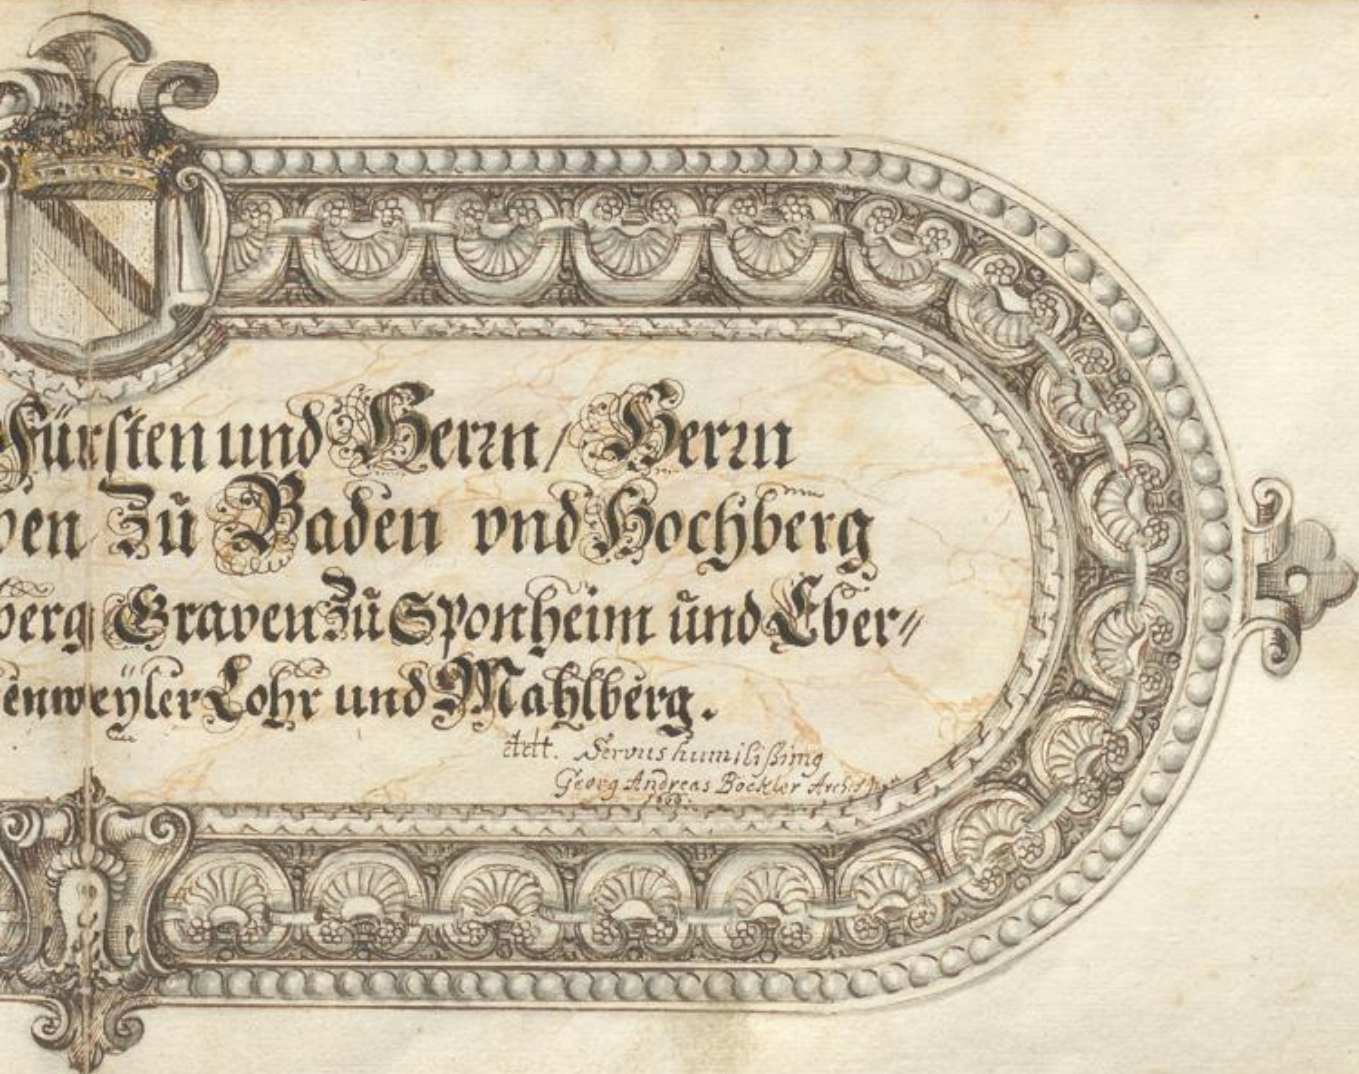 Fürsten und Herrn / Herrn
ven Zů Baden vnd Hochberg
berg Graven Zů Sponheim ůnd Eber⸗
enweÿler Lohr und Mahlberg.
Servus humilißimq
Georg Andreas Böckler Archit